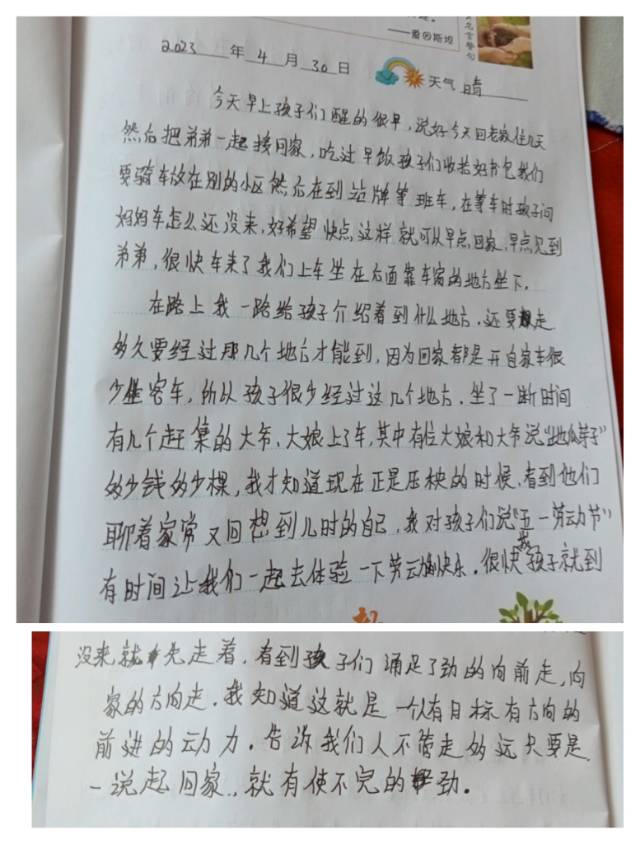 ——爱因斯坦
名言警句
2023 年 4 月 30 日 天气 晴
今天早上孩子们醒的很早，说好今天回老家住几天
然后把弟弟一起接回家，吃过早饭孩子们收拾好书包我们
要骑车放在别的小区然后在到站牌等班车，在等车时孩子问
妈妈车怎么还没来，好希望快点，这样就可以早点回家，早点见到
弟弟，很快车来了我们上车坐在右面靠车窗的地方坐下。
在路上我一路给孩子介绍着到什么地方，还要走
多久要经过那几个地方才能到，因为回家都是开自家车很
少坐客车，所以孩子很少经过这几个地方。坐了一断时间
有几个赶集的大爷、大娘上了车，其中有位大娘和大爷说"地瓜芽子"
多少钱多少棵，我才知道现在正是压秧的时候，看到他们
聊着家常又回想到儿时的自己，我对孩子们说"五一劳动节"
有时间让我们一起去体验一下劳动的快乐。很快我孩子就到
没来就先走着，看到孩子们满足了劲的向前走，向
家的方向走。我知道这就是一个有目标有方向的
前进的动力。告诉我们人不管走多远只要是
一说起回家，就有使不完的劲。